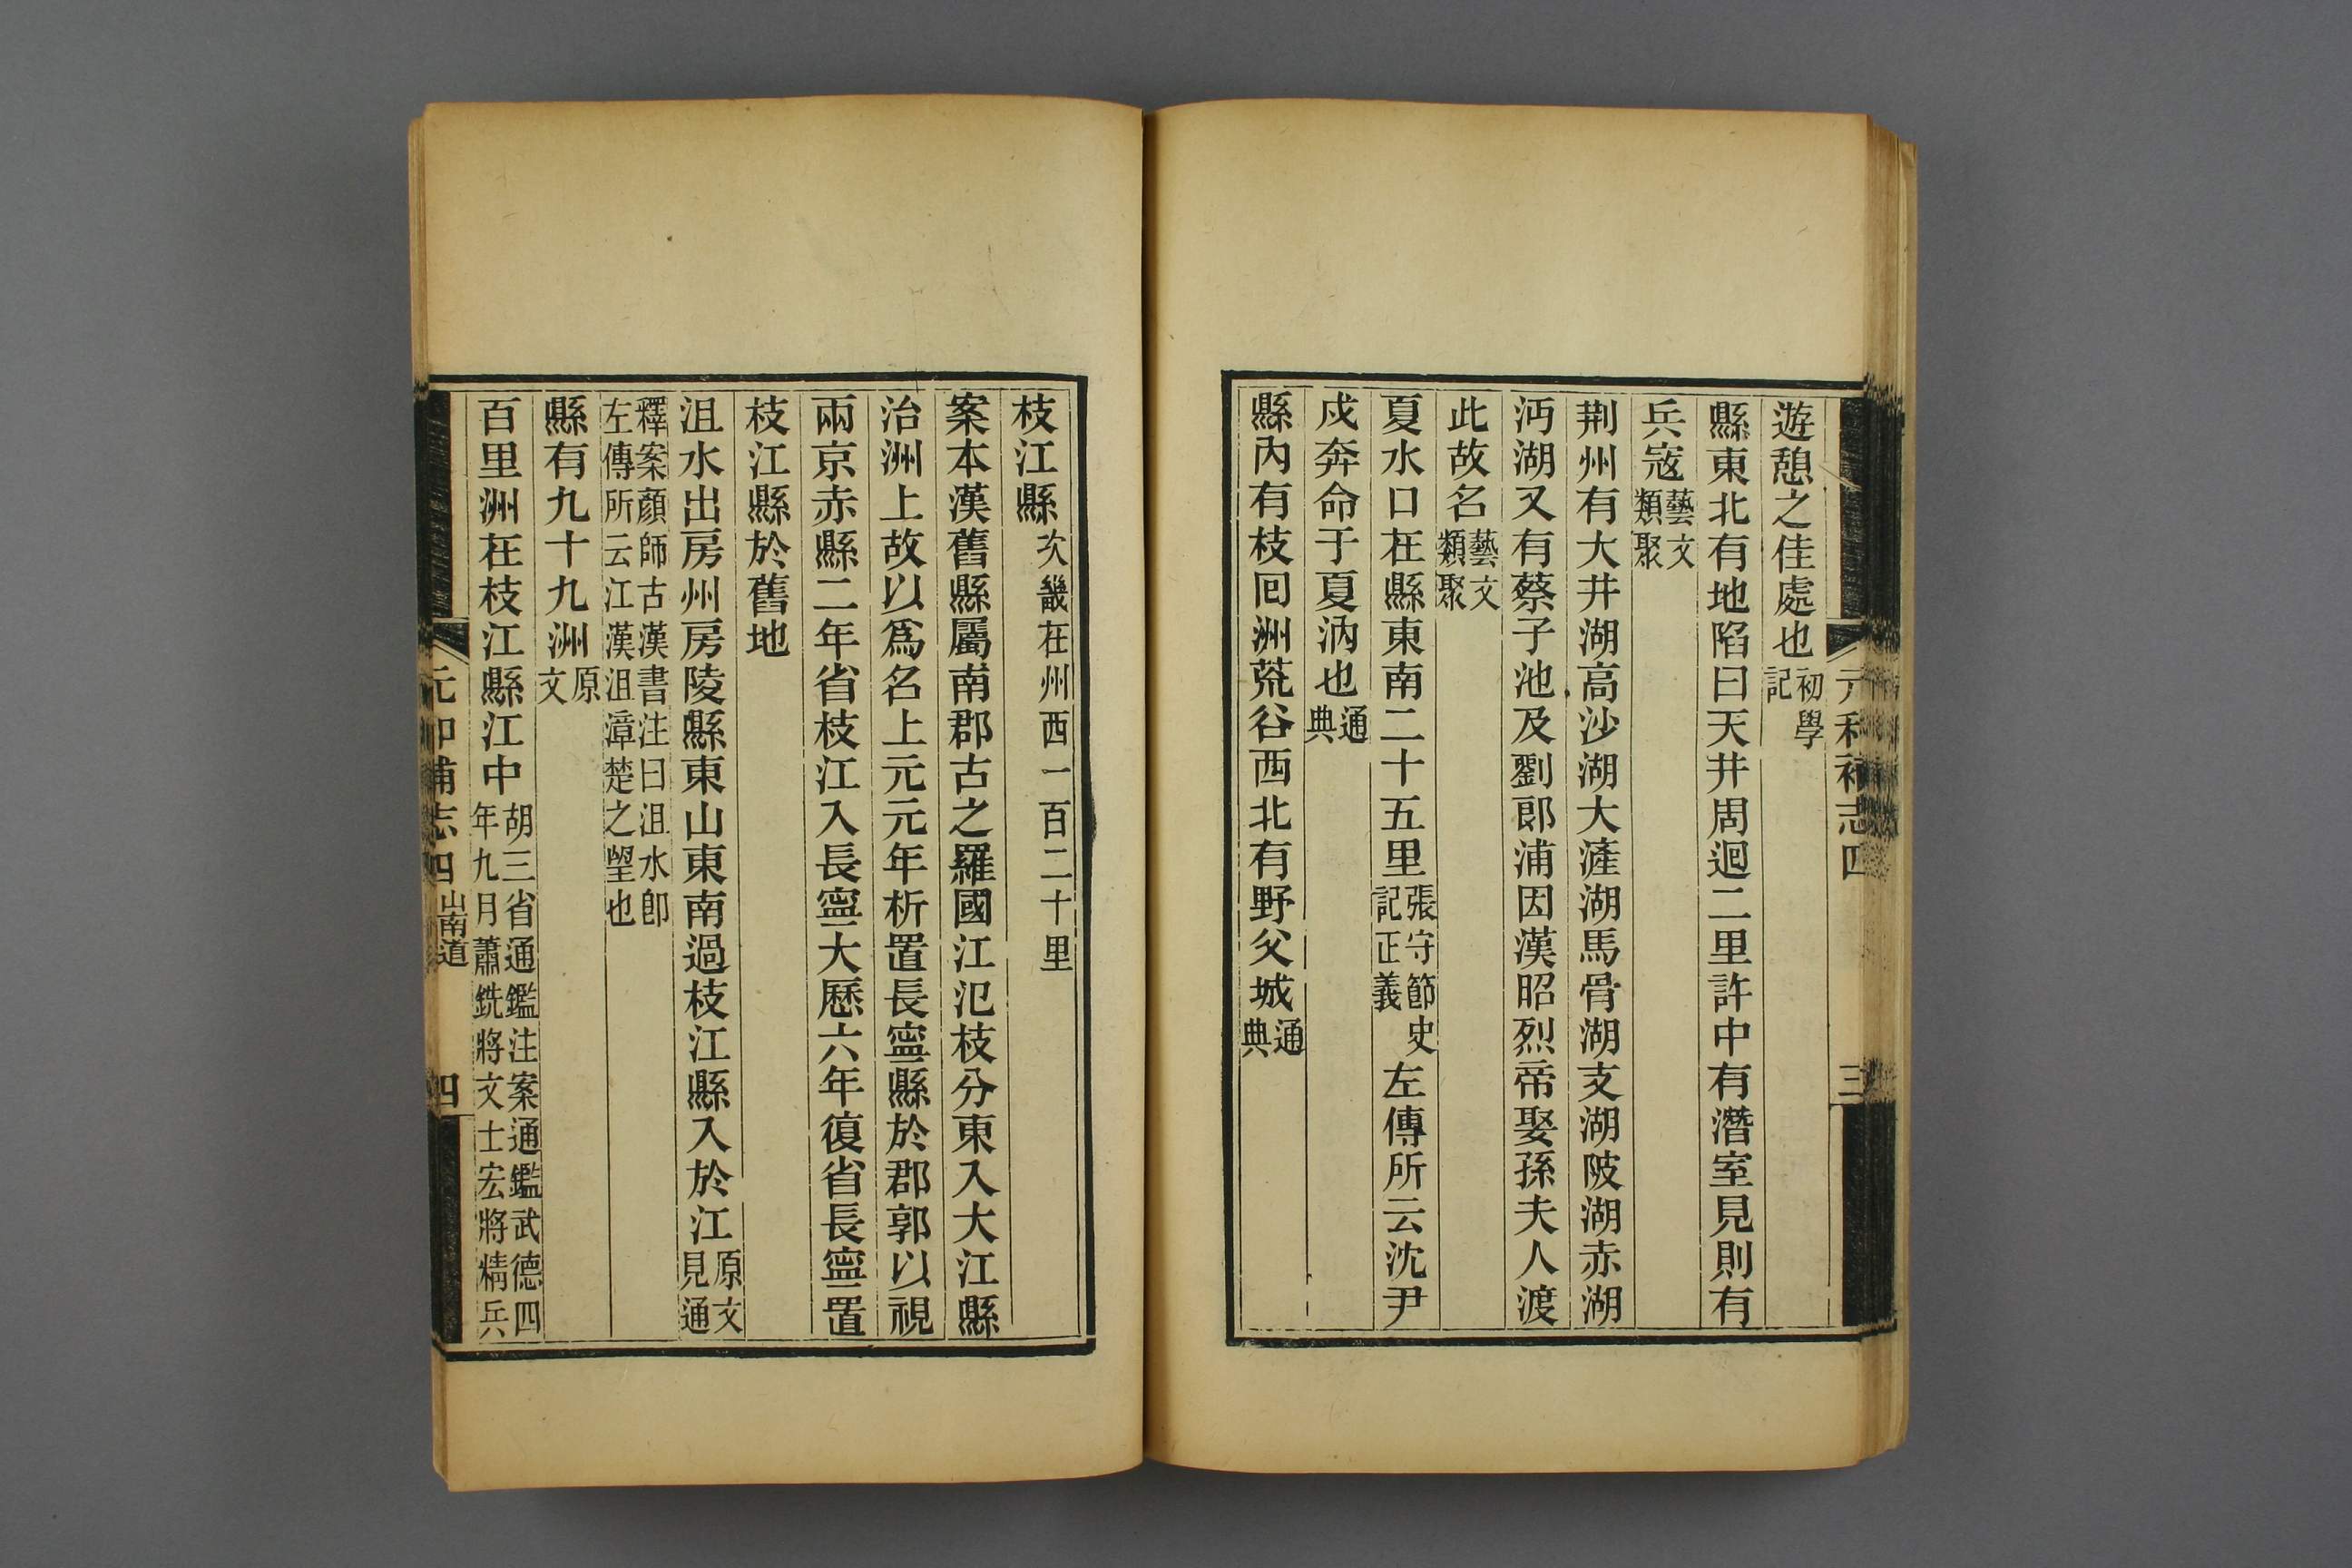 元和補志四
三
遊憩之佳處也初學記
縣東北有地陷曰天井周迴二里許中有潛室見則有
兵寇藝文類聚
荆州有大井湖高沙湖大滻湖馬骨湖支湖陂湖赤湖
沔湖又有蔡子池及劉郞浦因漢昭烈帝娶孫夫人渡
此故名藝文類聚
夏水口在縣東南二十五里張守節史記正義左傳所云沈尹
戍奔命于夏汭也通典
縣內有枝回洲荒谷西北有野父城通典
枝江縣次畿在州西一百二十里
案本漢舊縣屬南郡古之羅國江氾枝分東入大江縣
治洲上故以爲名上元元年析置長寧縣於郡郭以視
兩京赤縣二年省枝江入長寧大歷六年復省長寧置
枝江縣於舊地
沮水出房州房陵縣東山東南過枝江縣入於江原文見通
釋案顏師古漢書注曰沮水卽左傳所云江漢沮漳楚之望也
縣有九十九洲原文
百里洲在枝江縣江中胡三省通鑑注案通鑑武德四年九月蕭銑將文士宏將精兵
元和補志四
山南道
四